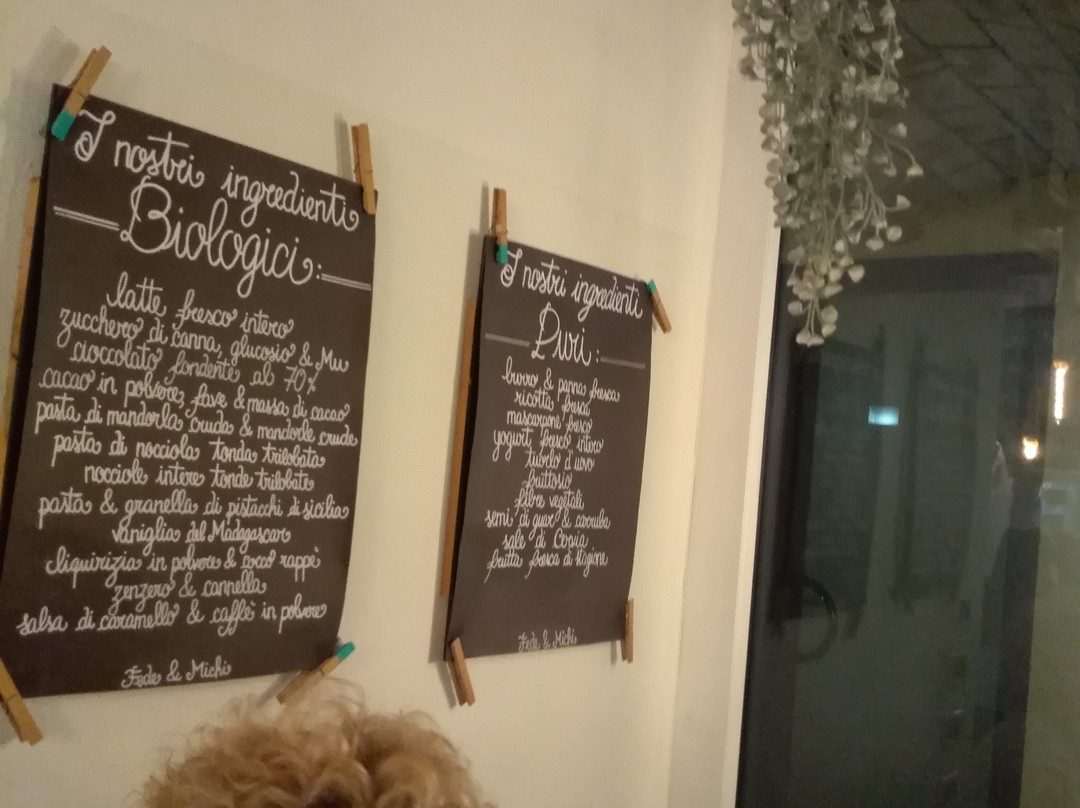 I nostri ingredienti
Biologici:
latte fresco intero
zucchero di canna, glucosio & Mu
cioccolato fondente al 70%
cacao in polvere, fave & massa di cacao
pasta di mandorla cruda & mandorle crude
pasta di nocciola tonda trilobata
nocciole intere tonde trilobate
pasta & granella di pistacchi di sicilia
vaniglia del Madagascar
liquirizia in polvere & cocco rappè
zenzero & cannella
salsa di caramello & caffè in polvere
Fede & Michi
I nostri ingredienti
Puri:
burro & panna fresca
ricotta fresca
mascarpone fresco
yogurt fresco intero
tuorlo d'uovo
fruttosio
fibre vegetali
semi di guar & carruba
sale di Cervia
frutta fresca di stagione
Fede & Michi